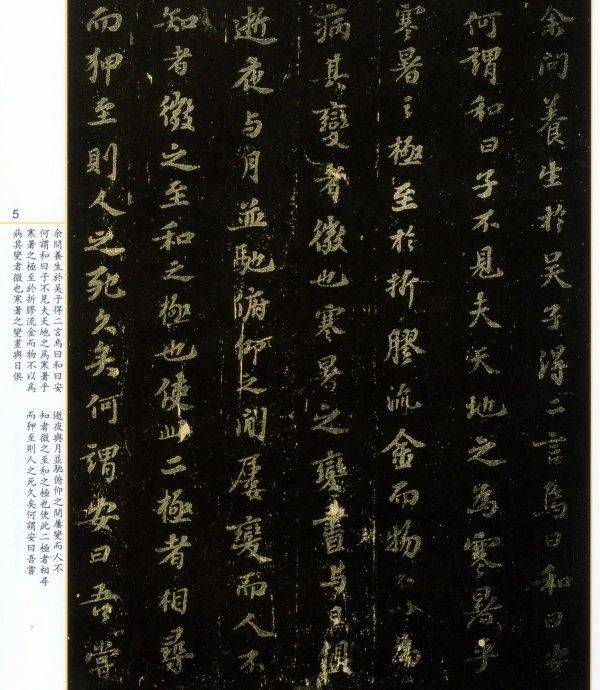 余问养生於吴子得二言焉曰和曰安
何謂和曰子不見夫天地之為寒暑乎
寒暑之極至於折膠流金而物不以為
病其變者微也寒暑之變晝与日俱
逝夜与月並馳俯仰之間屢變而人不
知者微之至和之極也使此二極者相尋
而狎至則人之死久矣何謂安曰吾嘗
5
余問養生於吳子得二言焉曰和曰安
何謂和曰子不見夫天地之為寒暑乎
寒暑之極至於折膠流金而物不以為
病其變者微也寒暑之變晝與日俱
逝夜與月並馳俯仰之間屢變而人不
知者微之至和之極也使此二極者相尋
而狎至則人之死久矣何謂安曰吾嘗